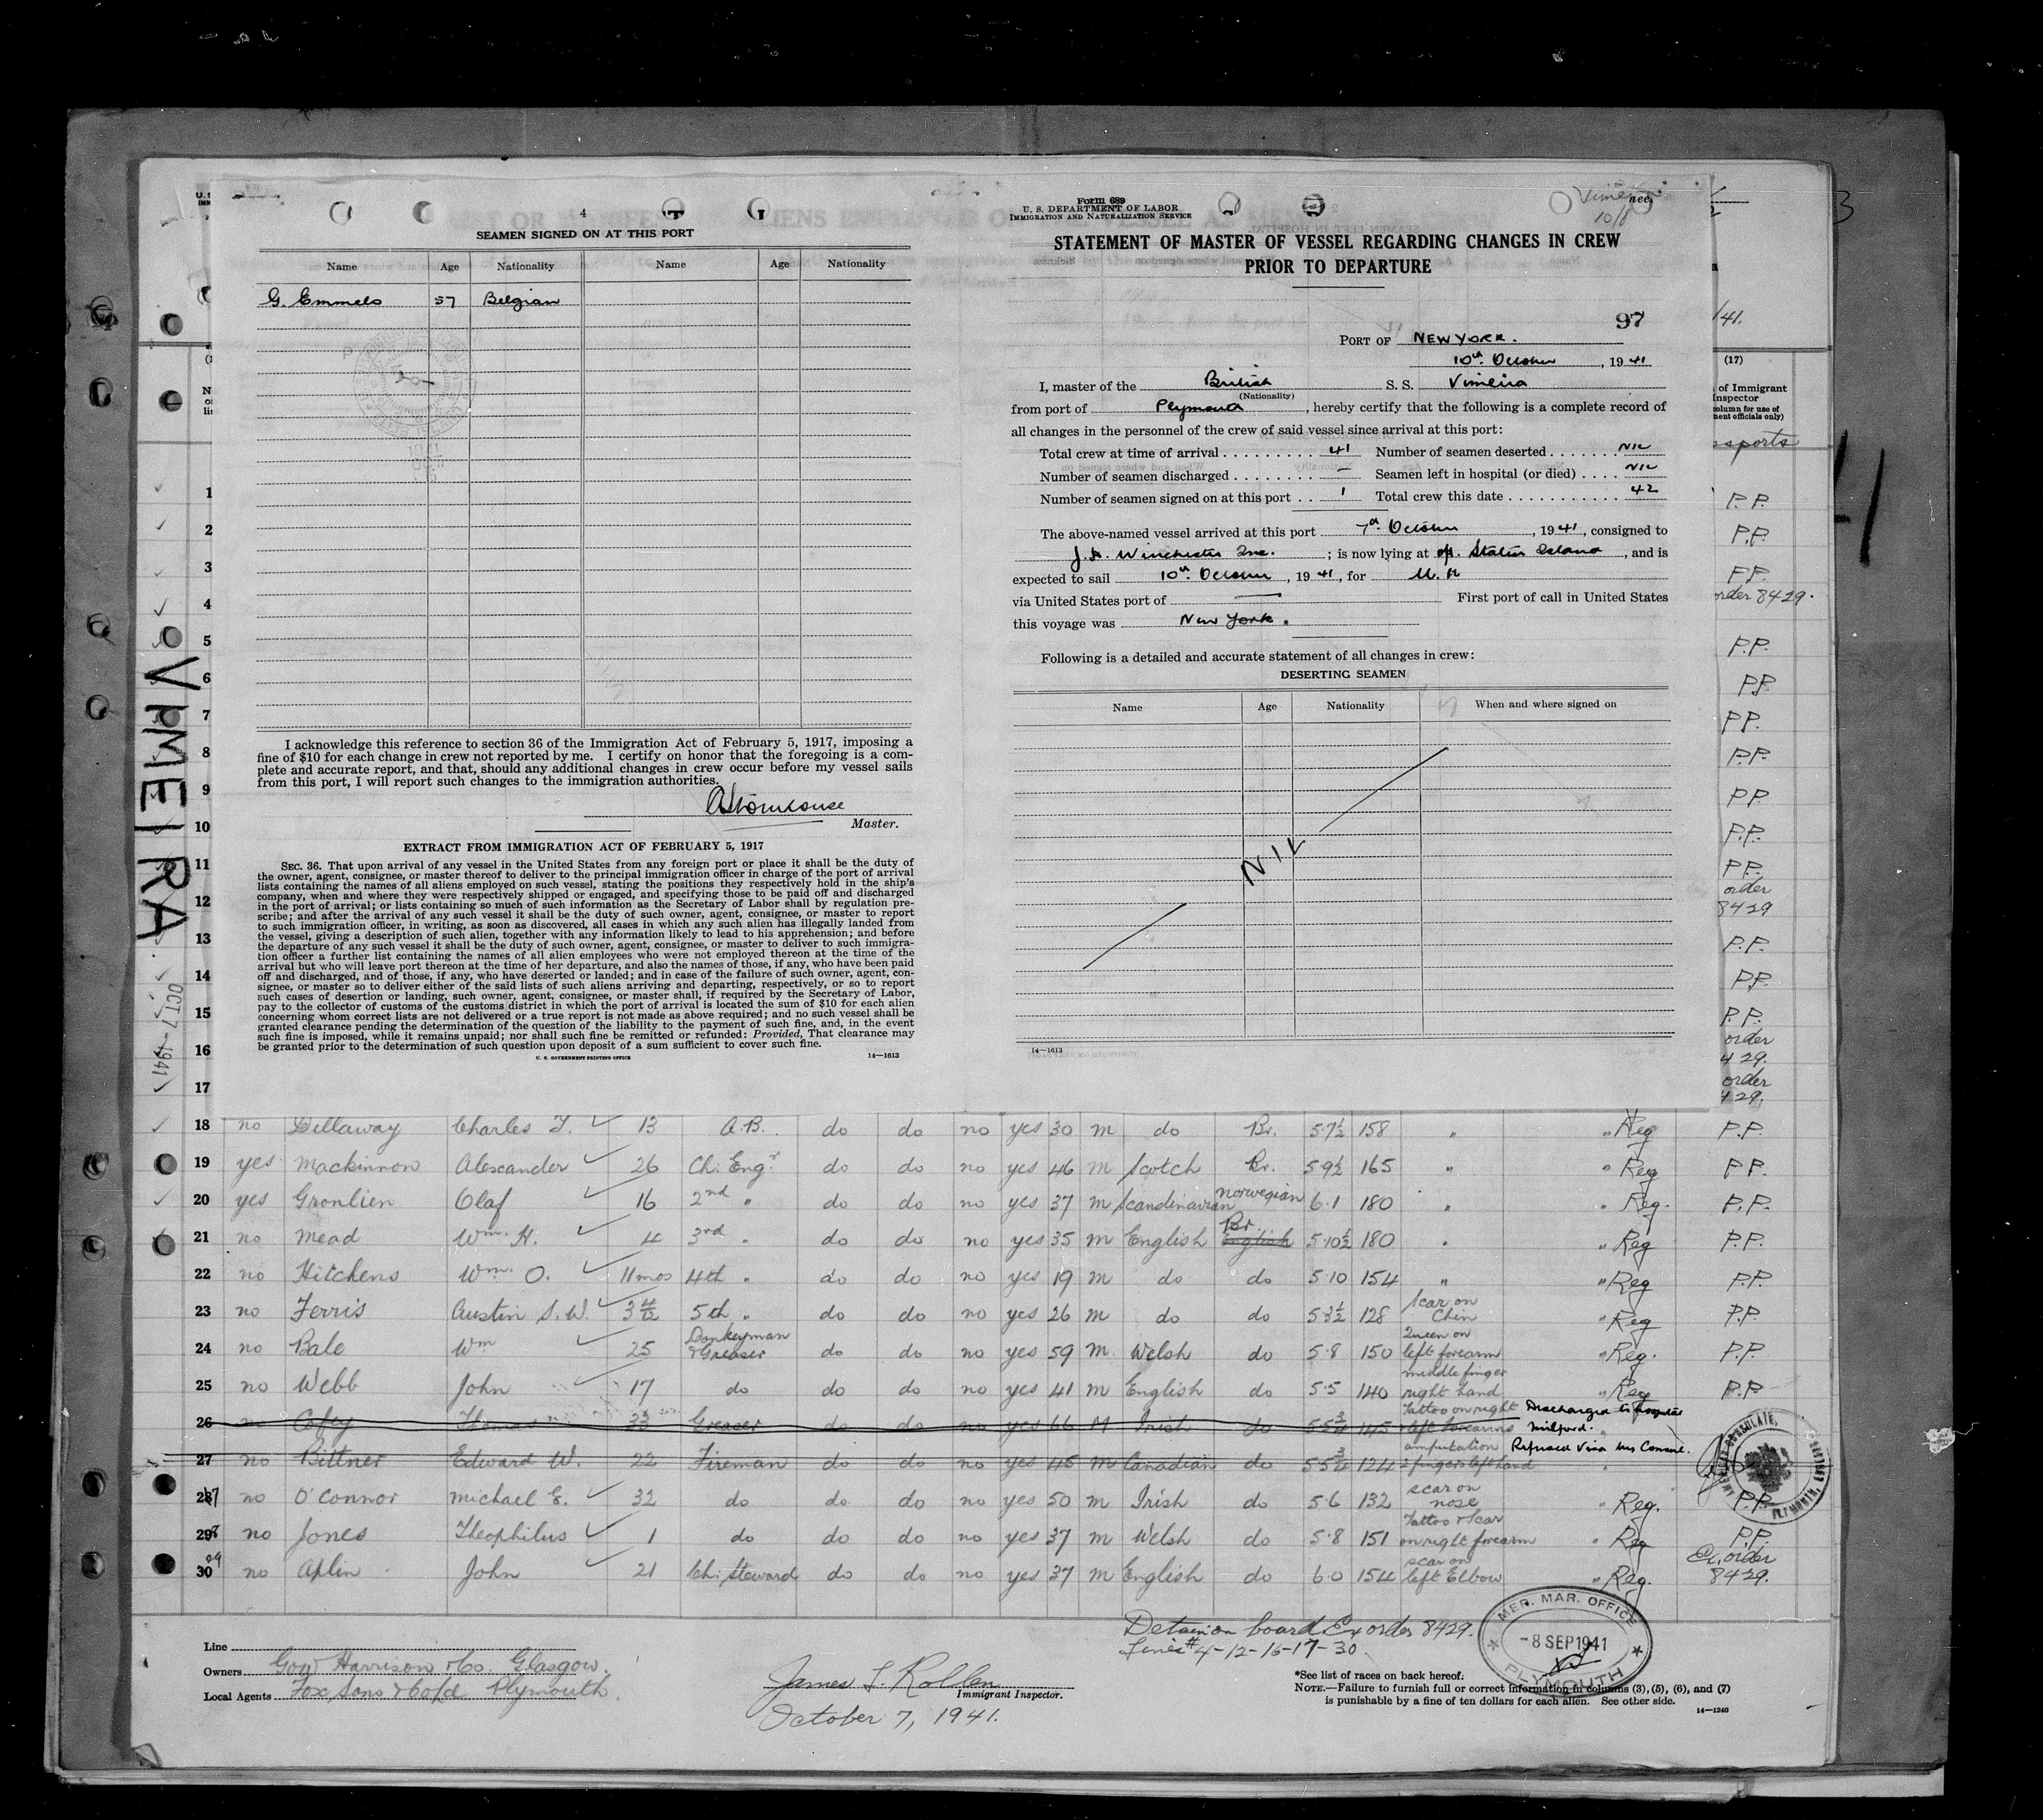 4
SEAMEN SIGNED ON AT THIS PORT
Name Age Nationality Name Age Nationality
G. Emmels 57 Belgian
I acknowledge this reference to section 36 of the Immigration Act of February 5, 1917, imposing a
fine of $10 for each change in crew not reported by me. I certify on honor that the foregoing is a com-
plete and accurate report, and that, should any additional changes in crew occur before my vessel sails
from this port, I will report such changes to the immigration authorities.
Master.
EXTRACT FROM IMMIGRATION ACT OF FEBRUARY 5, 1917
SEC. 36. That upon arrival of any vessel in the United States from any foreign port or place it shall be the duty of
the owner, agent, consignee, or master thereof to deliver to the principal immigration officer in charge of the port of arrival
lists containing the names of all aliens employed on such vessel, stating the positions they respectively hold in the ship's
company, when and where they were respectively shipped or engaged, and specifying those to be paid off and discharged
in the port of arrival; or lists containing so much of such information as the Secretary of Labor shall by regulation pre-
scribe; and after the arrival of any such vessel it shall be the duty of such owner, agent, consignee, or master to report
to such immigration officer, in writing, as soon as discovered, all cases in which any such alien has illegally landed from
the vessel, giving a description of such alien, together with any information likely to lead to his apprehension; and before
the departure of any such vessel it shall be the duty of such owner, agent, consignee, or master to deliver to such immigra-
tion officer a further list containing the names of all alien employees who were not employed thereon at the time of the
arrival but who will leave port thereon at the time of her departure, and also the names of those, if any, who have been paid
off and discharged, and of those, if any, who have deserted or landed; and in case of the failure of such owner, agent, con-
signee, or master so to deliver either of the said lists of such aliens arriving and departing, respectively, or so to report
such cases of desertion or landing, such owner, agent, consignee, or master shall, if required by the Secretary of Labor,
pay to the collector of customs of the customs district in which the port of arrival is located the sum of $10 for each alien
concerning whom correct lists are not delivered or a true report is not made as above required; and no such vessel shall be
granted clearance pending the determination of the question of the liability to the payment of such fine, and, in the event
such fine is imposed, while it remains unpaid; nor shall such fine be remitted or refunded: Provided, That clearance may
be granted prior to the determination of such question upon deposit of a sum sufficient to cover such fine.
U. S. GOVERNMENT PRINTING OFFICE 14—1613
Form 689
U. S. DEPARTMENT OF LABOR
IMMIGRATION AND NATURALIZATION SERVICE
Vimeira
10/8
STATEMENT OF MASTER OF VESSEL REGARDING CHANGES IN CREW
PRIOR TO DEPARTURE
97
PORT OF NEW YORK.
10th October, 1941
I, master of the British S. S. Vimeira
(Nationality)
from port of Plymouth, hereby certify that the following is a complete record of
all changes in the personnel of the crew of said vessel since arrival at this port:
Total crew at time of arrival 41 Number of seamen deserted NIL
Number of seamen discharged — Seamen left in hospital (or died) NIL
Number of seamen signed on at this port 1 Total crew this date 42
The above-named vessel arrived at this port 7th October, 1941, consigned to
J. H. Winchester Inc.; is now lying at off. Staten Island, and is
expected to sail 10th October, 1941, for U.K
via United States port of — First port of call in United States
this voyage was New York.
Following is a detailed and accurate statement of all changes in crew:
DESERTING SEAMEN
Name Age Nationality When and where signed on
NIL
14—1613
VIMEIRA
OCT 7-1941
/41.
(17)
of Immigrant
Inspector
column for use of
ment officials only)
ssports
1 P.P.
2 P.P.
3 P.P.
4 order 8429.
5 P.P.
6 P.P.
7 P.P.
8 P.P.
9 P.P.
10 P.P.
11 P.P.
12 order 8429
13 P.P.
14 P.P.
15 P.P.
16 order 429.
17 order 429.
18 no Dellaway Charles T. 13 A.B. do do no yes 30 m do Br. 5·7½ 158 " " Reg P.P.
19 yes Mackinnon Alexander 26 Ch. Engr do do no yes 46 m Scotch Br. 5 9½ 165 " " Reg P.P.
20 yes Gronlien Olaf 16 2nd " do do no yes 37 m Scandinavian Norwegian 6·1 180 " " Reg. P.P.
21 no Mead Wm. H. 4 3rd " do do no yes 35 m English English Br. 5·10½ 180 " " Reg P.P.
22 no Hitchens Wm. O. 11 mos 4th " do do no yes 19 m do do 5·10 154 " " Reg P.P.
23 no Ferris Austin S. W. 3 4/12 5th " do do no yes 26 m do do 5 3½ 128 Scar on Chin " Reg P.P.
24 no Bale Wm 25 Donkeyman & Greaser do do no yes 59 m Welsh do 5·8 150 Queen on left forearm " Reg. P.P.
25 no Webb John 17 do do do no yes 41 m English do 5·5 140 middle finger right hand " Reg P.P.
26 no Cofey Thomas 33 Greaser do do no yes 66 M Irish do 5 5¾ 145 Tattoo on right left forearms Discharged to hospital Milford.
27 no Bittner Edward W. 22 Fireman do do no yes 45 m Canadian do 5 5¾ 124 amputation 2 fingers left hand Refused Visa by Consul.
287 no O'Connor Michael E. 32 do do do no yes 50 m Irish do 5·6 132 scar on nose " Reg. P.P.
298 no Jones Theophilus 1 do do do no yes 37 m Welsh do 5·8 151 Tattoo & Scar on right forearm " Reg P.P.
29 30 no Aplin John 21 Ch. Steward do do no yes 37 m English do 6·0 154 scar on left Elbow " Reg. Ex. order 8429.
AMERICAN CONSULATE, PLYMOUTH
Line
Owners Gow Harrison & Co. Glasgow.
Local Agents Fox Sons & Co Ld Plymouth.
James L. Rollen
Immigrant Inspector.
October 7, 1941.
Detain on board Ex order 8429.
Lines # 4-12-16-17-30.
MER. MAR. OFFICE
-8 SEP 1941
PLYMOUTH
*See list of races on back hereof.
NOTE.—Failure to furnish full or correct information in columns (3), (5), (6), and (7)
is punishable by a fine of ten dollars for each alien. See other side.
14—1240